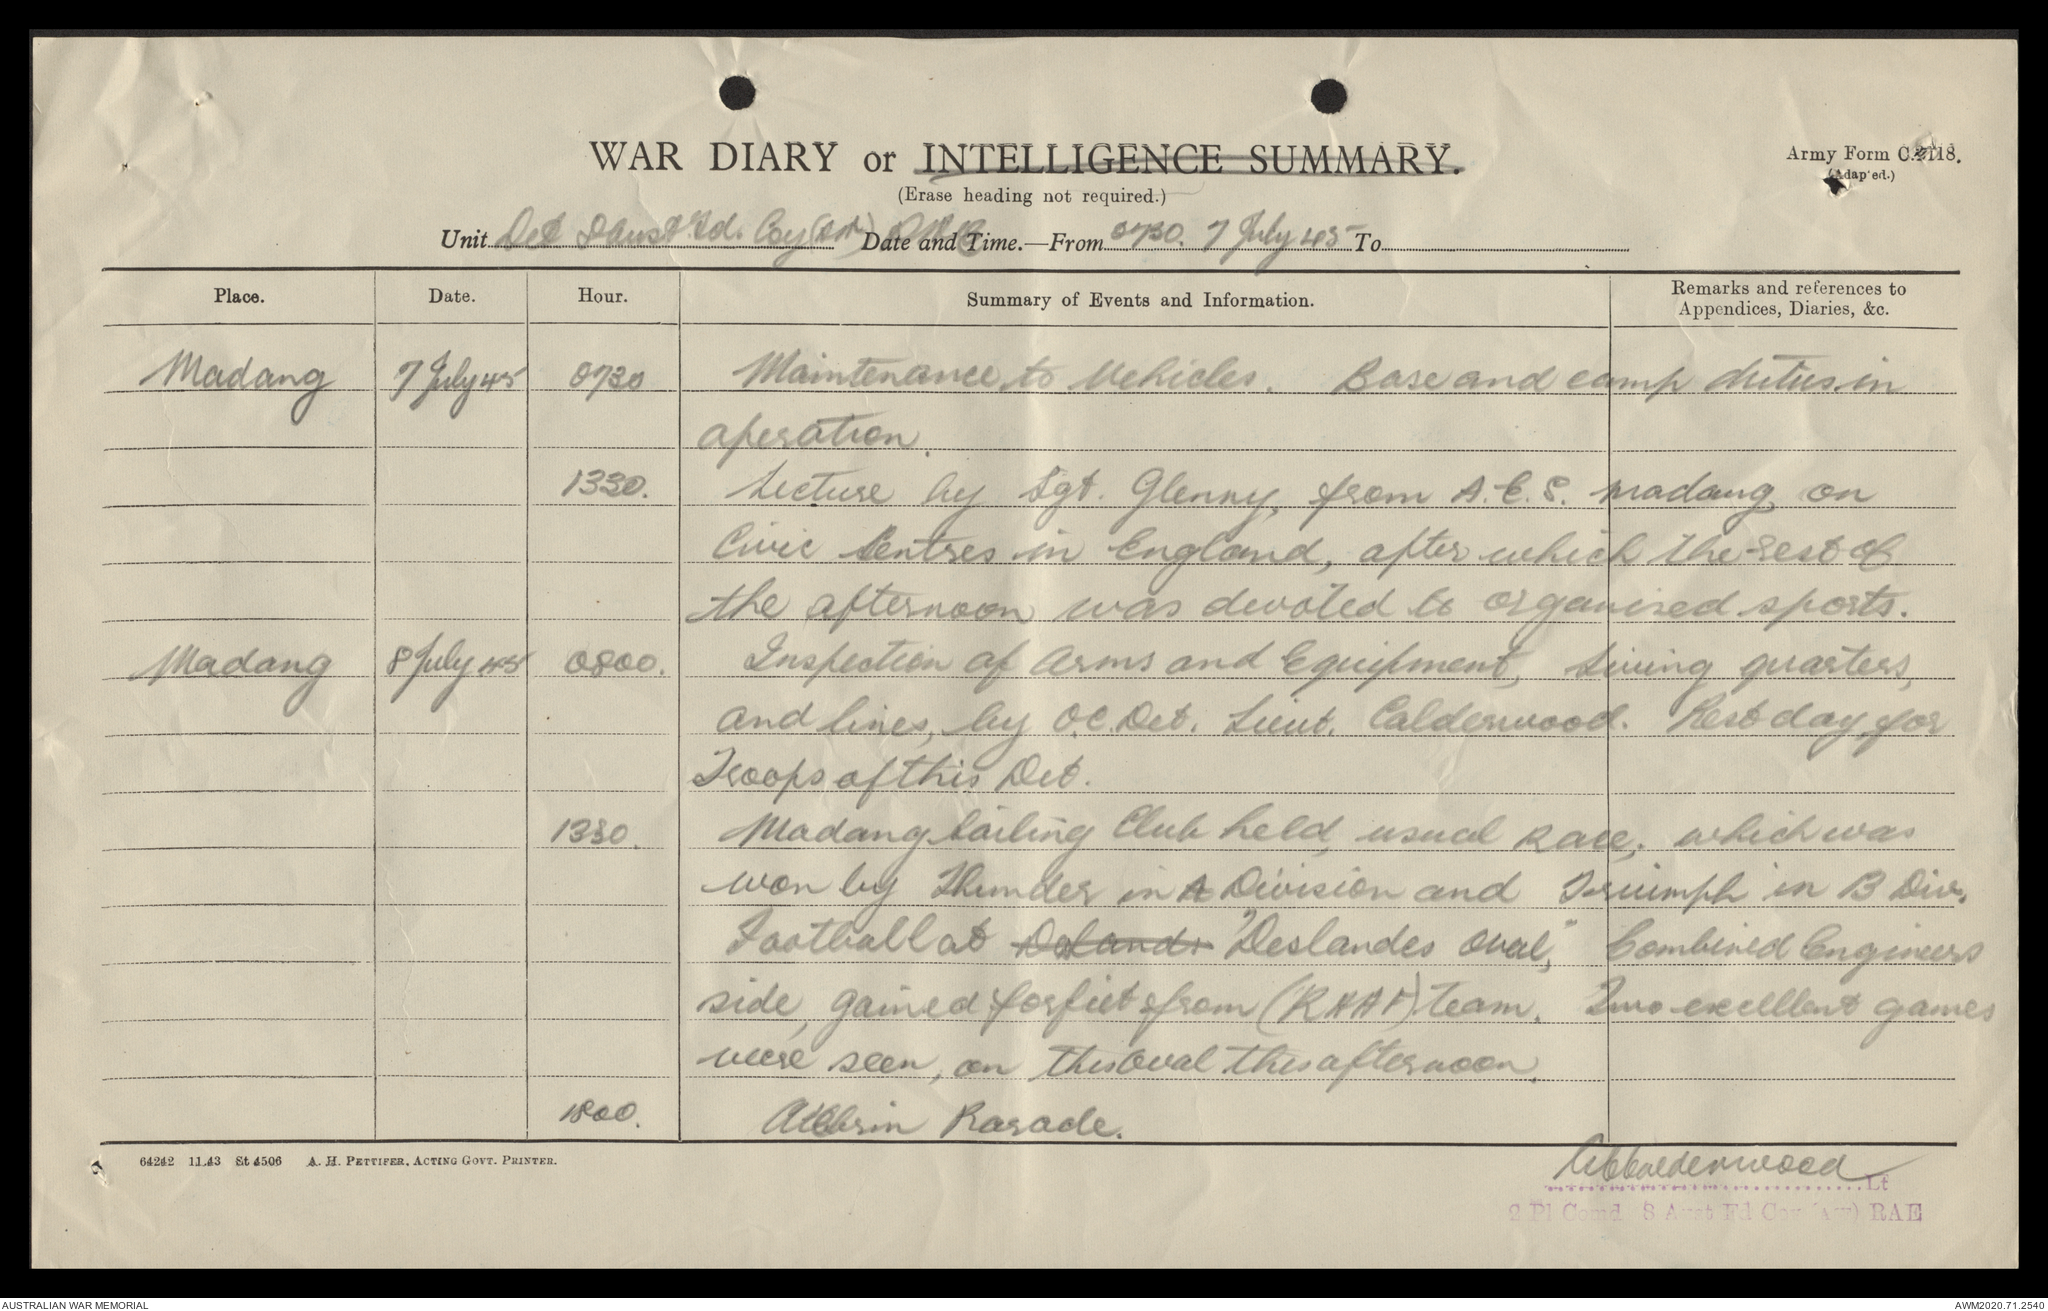 WAR DIARY or INTELLIGENCE SUMMARY.
Army Form C.2118.
(Adapted.)
(Erase heading not required.)
Unit Det 8 Aust Fd. Coy (AIF) RAE Date and Time.—From 0730. 7 July 45 To
Place. Date. Hour. Summary of Events and Information. Remarks and references to
Appendices, Diaries, &c.
Madang 7 July 45 0730 Maintenance to Vehicles. Base and camp duties in
operation.
1330. Lecture by Sgt. Glenny, from A.E.S. Madang, on
Civic Centres in England, after which the rest of
the afternoon was devoted to organized sports.
Madang 8 July 45 0800. Inspection of Arms and Equipment, Living quarters,
and lines, by O.C. Det. Lieut. Calderwood. Rest day for
Troops of this Det.
1330. Madang Sailing Club held, usual Race, which was
won by Thunder in A Division and Triumph in B Div.
Football at Deslands "Deslandes Oval," Combined Engineers
side, gained forfiet from (RAAF) team. Two excellent games
were seen, on this Oval this afternoon.
1800. Attebrin Parade.
64242 11.43 St 4506 A. H. PETTIFER, ACTING GOVT. PRINTER.
Calderwood
Lt
2 Pl Comd 8 Aust Fd Coy (AIF) RAE
AUSTRALIAN WAR MEMORIAL
AWM2020.71.2540